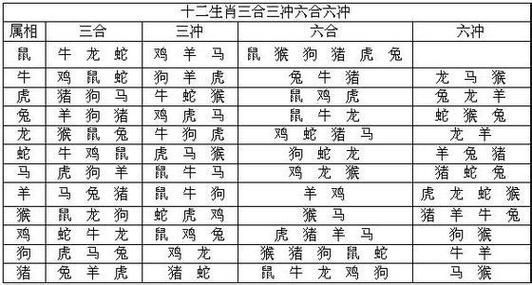 十二生肖三合三冲六合六冲
属相 三合 三冲 六合 六冲
鼠 牛 龙 蛇 鸡 羊 马 鼠 猴 狗 猪 虎 兔
牛 鸡 鼠 蛇 狗 羊 虎 兔 牛 猪 龙 马 猴
虎 猪 狗 马 牛 蛇 猴 鼠 鸡 虎 兔 龙 羊
兔 羊 狗 猪 鸡 虎 马 鼠 牛 龙 蛇 猴 兔
龙 猴 鼠 兔 牛 狗 虎 鸡 蛇 猪 马 龙 羊
蛇 牛 鸡 鼠 虎 马 猴 狗 蛇 龙 羊 兔 猪
马 虎 狗 羊 鼠 牛 马 鸡 龙 猴 猪 蛇 兔
羊 马 兔 猪 鼠 牛 狗 羊 鸡 虎 龙 蛇 猴
猴 鼠 龙 狗 蛇 虎 鸡 猴 马 猪 羊 牛 兔
鸡 蛇 牛 龙 鼠 鸡 兔 虎 猪 羊 马 狗 猴
狗 虎 马 兔 鸡 龙 猴 猪 狗 鼠 蛇 牛 羊
猪 兔 羊 虎 猪 蛇 鼠 牛 龙 鸡 狗 马 猴